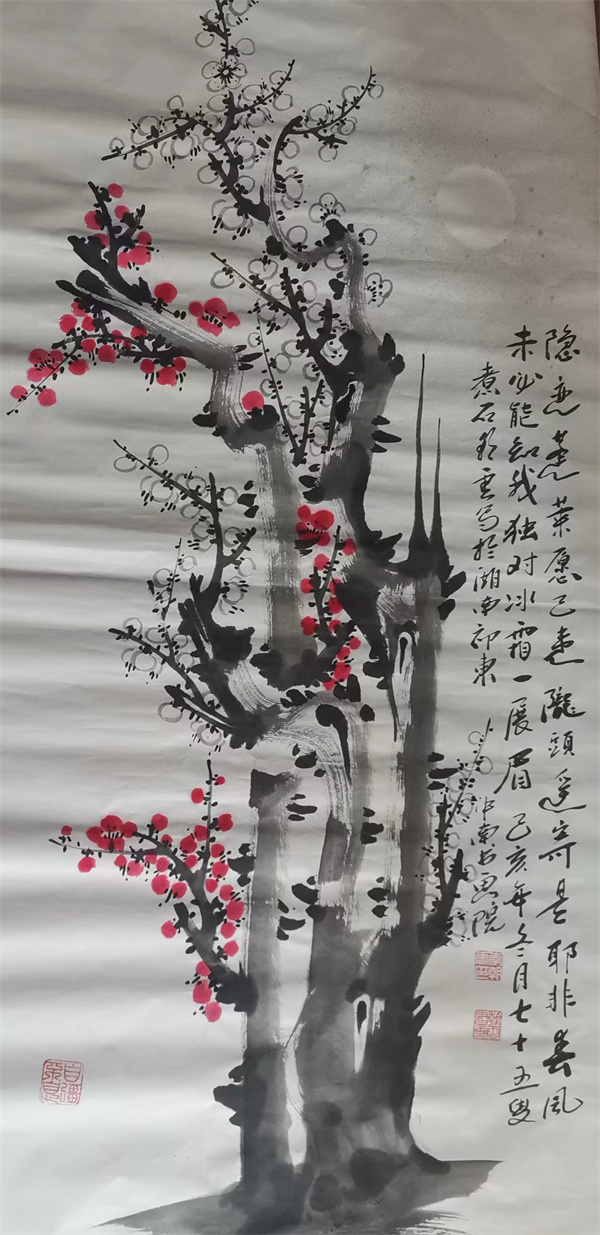 隐恋莱愿已违陇頭遥寄是耶非春风
未必能知我独对冰霜一展眉己亥年冬月七十五叟
煮石写於湖南祁东
南书画院